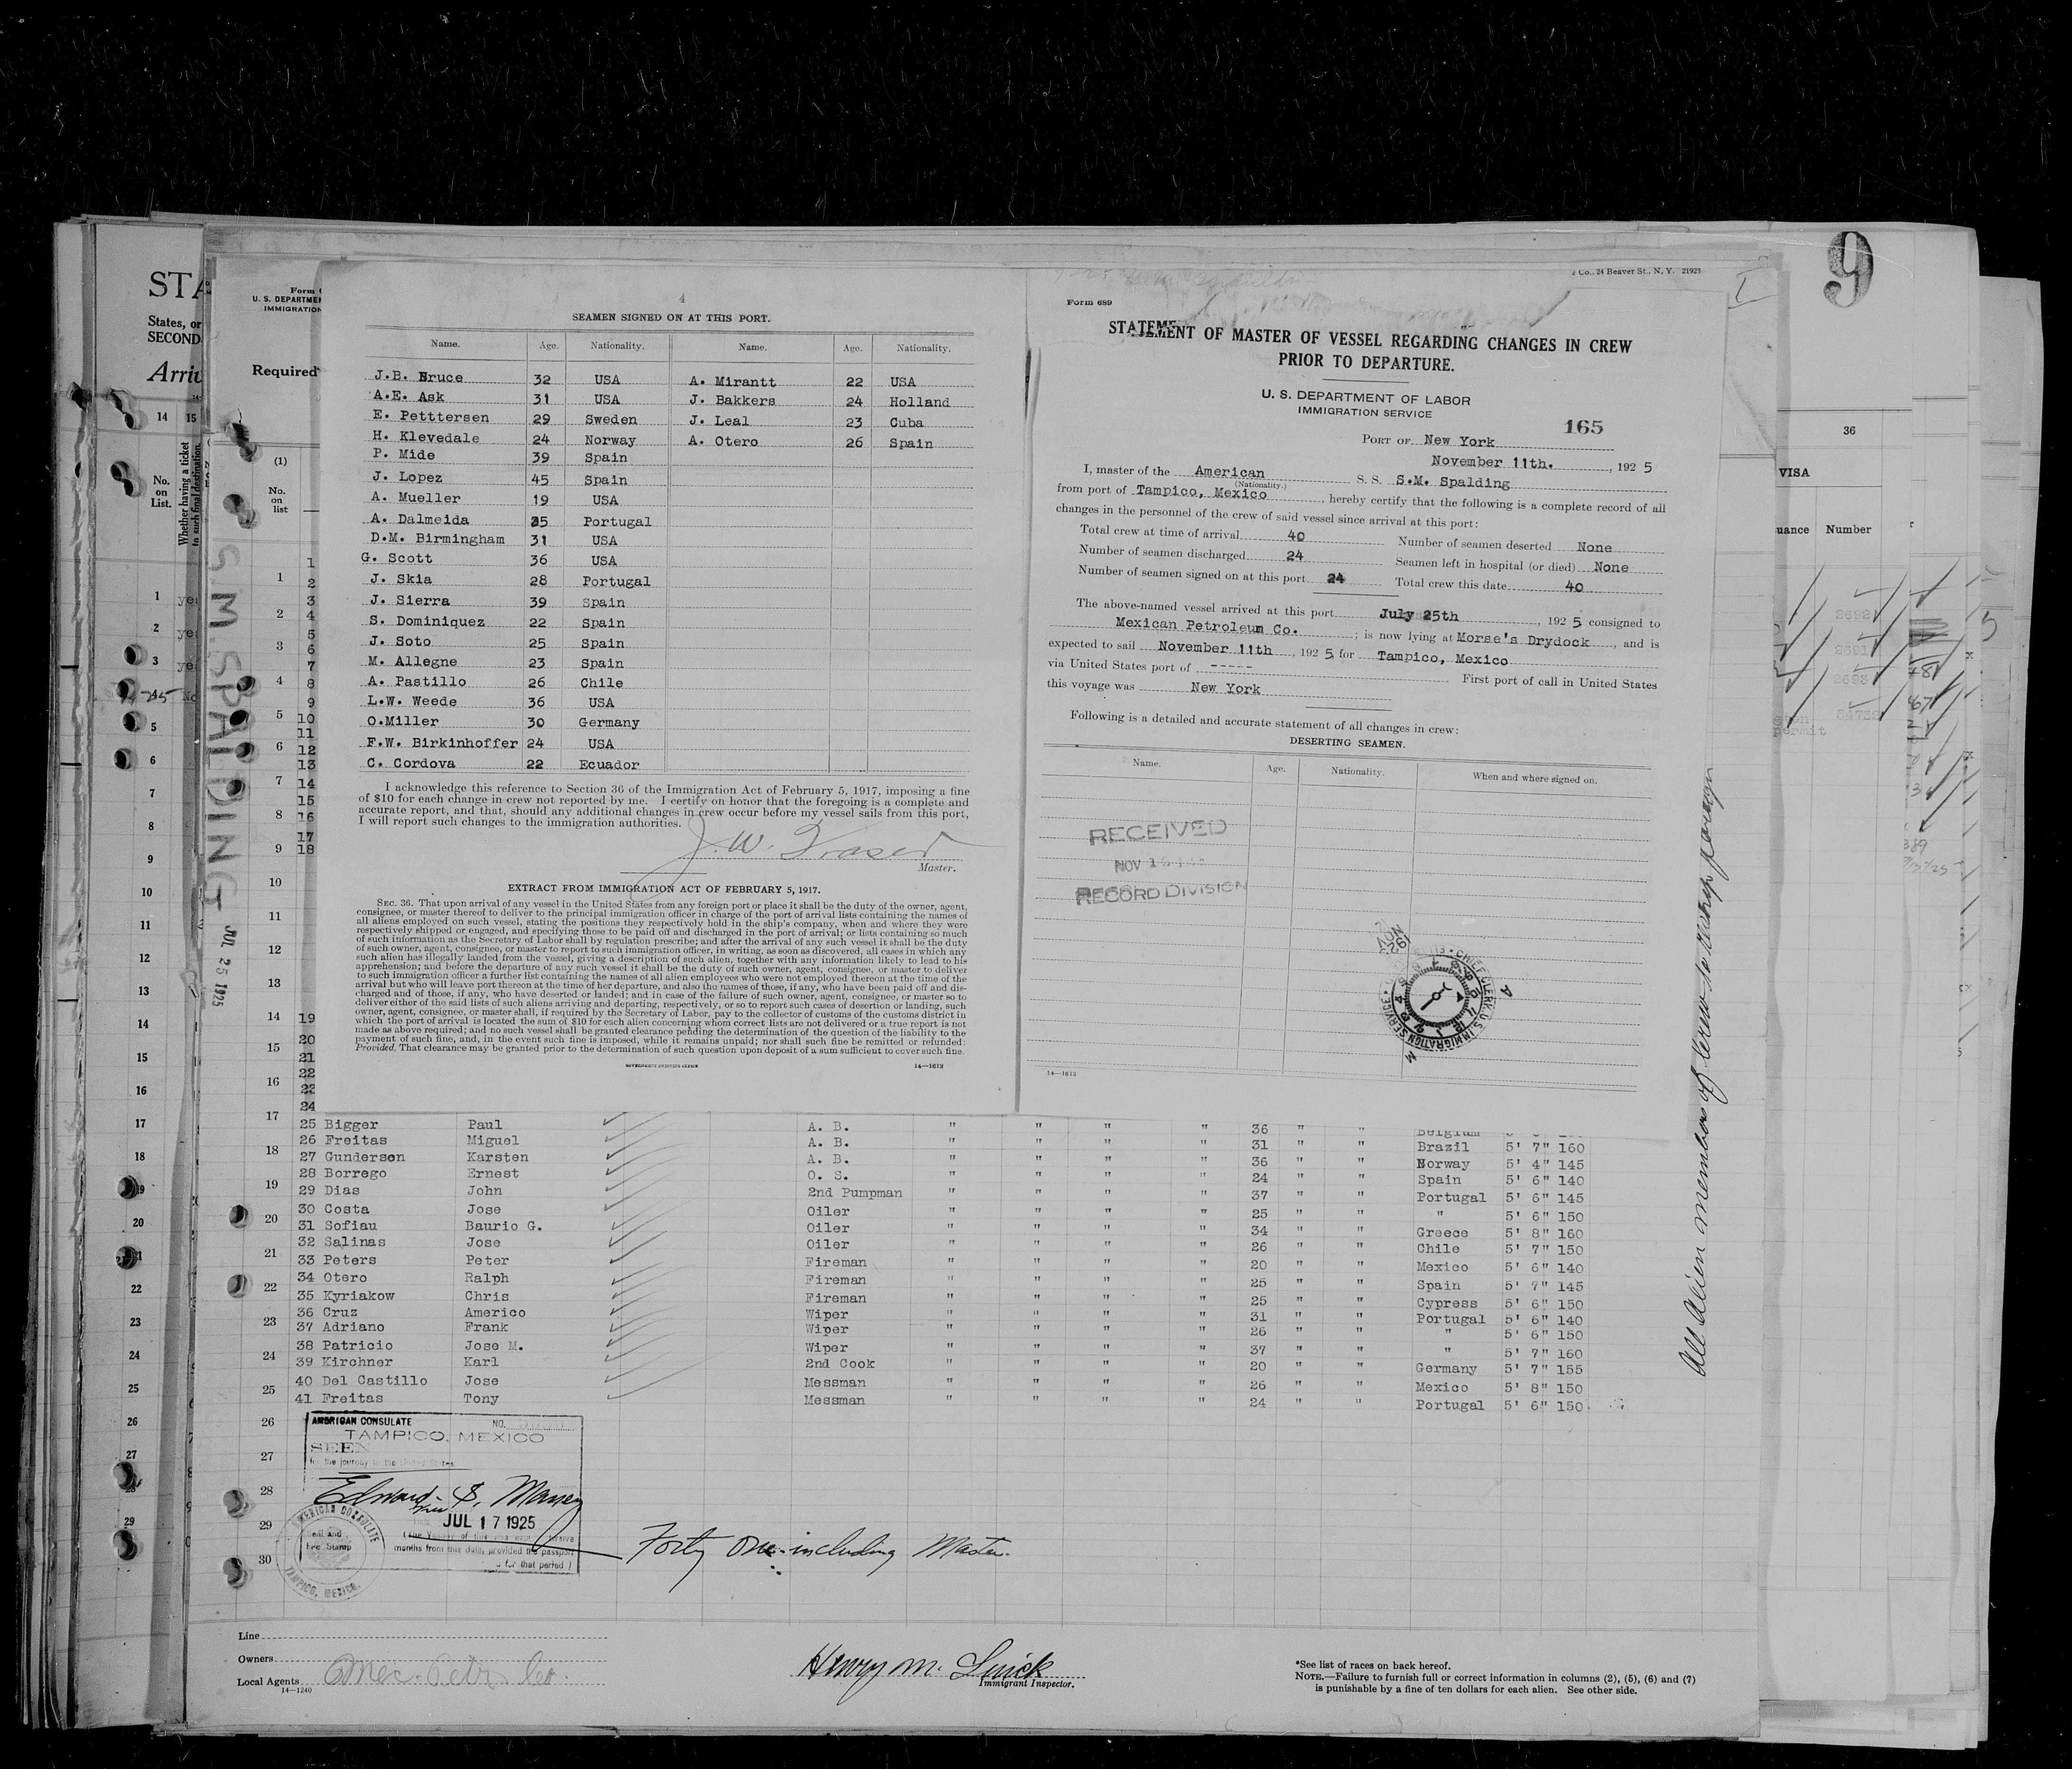 STA
States, or
SECOND
Arriv
14 15
No.
on
List.
Whether having a ticket
to such final destination.
Form
U. S. DEPARTMEN
IMMIGRATION
Required
(1)
No.
on
list
S.M. SPALDING
JUL 25 1925
4
SEAMEN SIGNED ON AT THIS PORT.
Name. Age. Nationality. Name. Age. Nationality.
J.B. Bruce 32 USA A. Mirantt 22 USA
A.E. Ask 31 USA J. Bakkers 24 Holland
E. Petttersen 29 Sweden J. Leal 23 Cuba
H. Klevedale 24 Norway A. Otero 26 Spain
P. Mide 39 Spain
J. Lopez 45 Spain
A. Mueller 19 USA
A. Dalmeida 35 Portugal
D.M. Birmingham 31 USA
G. Scott 36 USA
J. Skia 28 Portugal
J. Sierra 39 Spain
S. Dominiquez 22 Spain
J. Soto 25 Spain
M. Allegne 23 Spain
A. Pastillo 26 Chile
L.W. Weede 36 USA
O.Miller 30 Germany
F.W. Birkinhoffer 24 USA
C. Cordova 22 Ecuador
I acknowledge this reference to Section 36 of the Immigration Act of February 5, 1917, imposing a fine
of $10 for each change in crew not reported by me. I certify on honor that the foregoing is a complete and
accurate report, and that, should any additional changes in crew occur before my vessel sails from this port,
I will report such changes to the immigration authorities.
J. W. Fraser
Master.
EXTRACT FROM IMMIGRATION ACT OF FEBRUARY 5, 1917.
SEC. 36. That upon arrival of any vessel in the United States from any foreign port or place it shall be the duty of the owner, agent,
consignee, or master thereof to deliver to the principal immigration officer in charge of the port of arrival lists containing the names of
all aliens employed on such vessel, stating the positions they respectively hold in the ship's company, when and where they were
respectively shipped or engaged, and specifying those to be paid off and discharged in the port of arrival; or lists containing so much
of such information as the Secretary of Labor shall by regulation prescribe; and after the arrival of any such vessel it shall be the duty
of such owner, agent, consignee, or master to report to such immigration officer, in writing, as soon as discovered, all cases in which any
such alien has illegally landed from the vessel, giving a description of such alien, together with any information likely to lead to his
apprehension; and before the departure of any such vessel it shall be the duty of such owner, agent, consignee, or master to deliver
to such immigration officer a further list containing the names of all alien employees who were not employed thereon at the time of the
arrival but who will leave port thereon at the time of her departure, and also the names of those, if any, who have been paid off and dis-
charged and of those, if any, who have deserted or landed; and in case of the failure of such owner, agent, consignee, or master so to
deliver either of the said lists of such aliens arriving and departing, respectively, or so to report such cases of desertion or landing, such
owner, agent, consignee, or master shall, if required by the Secretary of Labor, pay to the collector of customs of the customs district in
which the port of arrival is located the sum of $10 for each alien concerning whom correct lists are not delivered or a true report is not
made as above required; and no such vessel shall be granted clearance pending the determination of the question of the liability to the
payment of such fine, and, in the event such fine is imposed, while it remains unpaid; nor shall such fine be remitted or refunded:
Provided, That clearance may be granted prior to the determination of such question upon deposit of a sum sufficient to cover such fine.
GOVERNMENT PRINTING OFFICE 14—1613
Co., 24 Beaver St., N. Y. 21923
Form 689
STATEMENT OF MASTER OF VESSEL REGARDING CHANGES IN CREW
PRIOR TO DEPARTURE.
U. S. DEPARTMENT OF LABOR
IMMIGRATION SERVICE
165
PORT OF New York
November 11th. , 192 5
I, master of the American S. S. S.M. Spalding
(Nationality.)
from port of Tampico, Mexico , hereby certify that the following is a complete record of all
changes in the personnel of the crew of said vessel since arrival at this port:
Total crew at time of arrival 40 Number of seamen deserted None
Number of seamen discharged 24 Seamen left in hospital (or died) None
Number of seamen signed on at this port 24 Total crew this date 40
The above-named vessel arrived at this port July 25th , 192 5 consigned to
Mexican Petroleum Co. ; is now lying at Morse's Drydock , and is
expected to sail November 11th , 192 5 for Tampico, Mexico
via United States port of ----- First port of call in United States
this voyage was New York
Following is a detailed and accurate statement of all changes in crew:
DESERTING SEAMEN.
Name. Age. Nationality. When and where signed on.
RECEIVED
NOV
RECORD DIVISION
CHIEF CLERK U.S. IMMIGRATION SERVICE
14—1613
9
36
VISA
uance Number
2692
2691
2693
54732
permit
All Alien members of crew to reship foreign
25 Bigger Paul A. B. " " " " 36 " " Belgium
26 Freitas Miguel A. B. " " " " 31 " " Brazil 5' 7" 160
27 Gunderson Karsten A. B. " " " " 36 " " Norway 5' 4" 145
28 Borrego Ernest O. S. " " " " 24 " " Spain 5' 6" 140
29 Dias John 2nd Pumpman " " " " 37 " " Portugal 5' 6" 145
30 Costa Jose Oiler " " " " 25 " " " 5' 6" 150
31 Sofiau Baurio G. Oiler " " " " 34 " " Greece 5' 8" 160
32 Salinas Jose Oiler " " " " 26 " " Chile 5' 7" 150
33 Peters Peter Fireman " " " " 20 " " Mexico 5' 6" 140
34 Otero Ralph Fireman " " " " 25 " " Spain 5' 7" 145
35 Kyriakow Chris Fireman " " " " 25 " " Cypress 5' 6" 150
36 Cruz Americo Wiper " " " " 31 " " Portugal 5' 6" 140
37 Adriano Frank Wiper " " " " 26 " " " 5' 6" 150
38 Patricio Jose M. Wiper " " " " 37 " " " 5' 7" 160
39 Kirchner Karl 2nd Cook " " " " 20 " " Germany 5' 7" 155
40 Del Castillo Jose Messman " " " " 26 " " Mexico 5' 8" 150
41 Freitas Tony Messman " " " " 24 " " Portugal 5' 6" 150
AMERICAN CONSULATE NO.
TAMPICO, MEXICO
SEEN
for the journey to the United States
Edward S. Maney
JUL 17 1925
months from this date, provided the passport
for that period )
AMERICAN CONSULATE
Seal and
Fee Stamp
TAMPICO, MEXICO.
Forty One including Master.
Line
Owners
Local Agents Mex. Petr. Co.
14—1240
Henry M. Luick
Immigrant Inspector.
*See list of races on back hereof.
NOTE.—Failure to furnish full or correct information in columns (2), (5), (6) and (7)
is punishable by a fine of ten dollars for each alien. See other side.